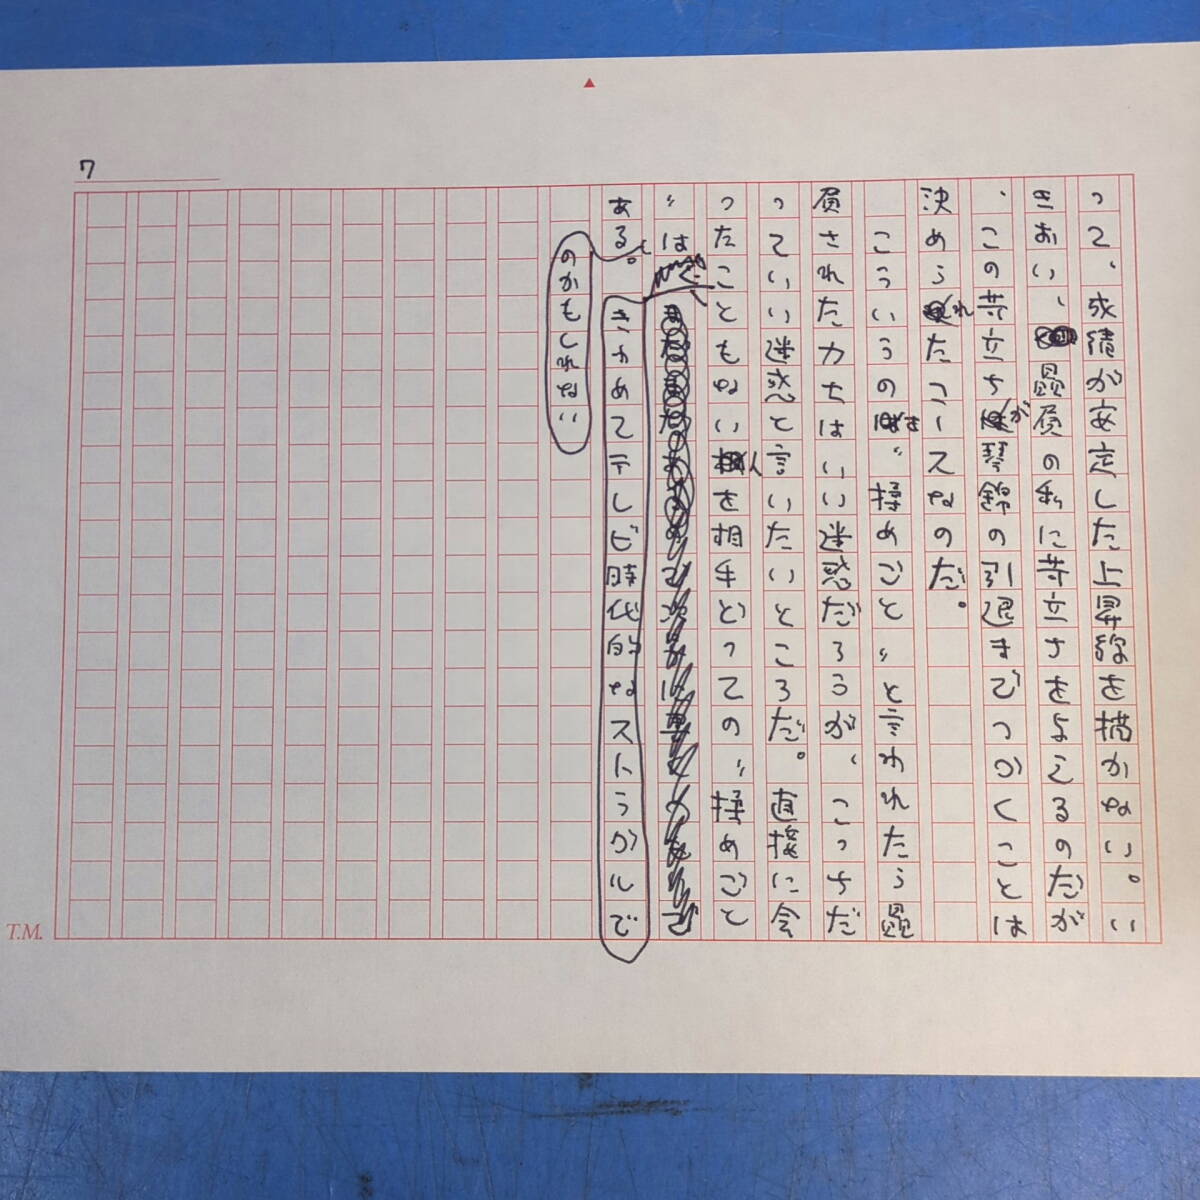 7
って、成績が安定した上昇線を描かない。い
きおい、贔屓の私に苛立さをよえるのだが
、この苛立ちが琴錦の引退までつゞくことは
決められたコースなのだ。
こういうのを〝揉めごと〟と言われたら贔
屓されたカちはいい迷惑だろうが、こっちだ
っていい迷惑と言いたいところだ。直接に会
ったこともない人を相手どっての〝揉めごと
〟は
きわめてテレビ時代的なストラグルで
ある。
のかもしれない
T.M.